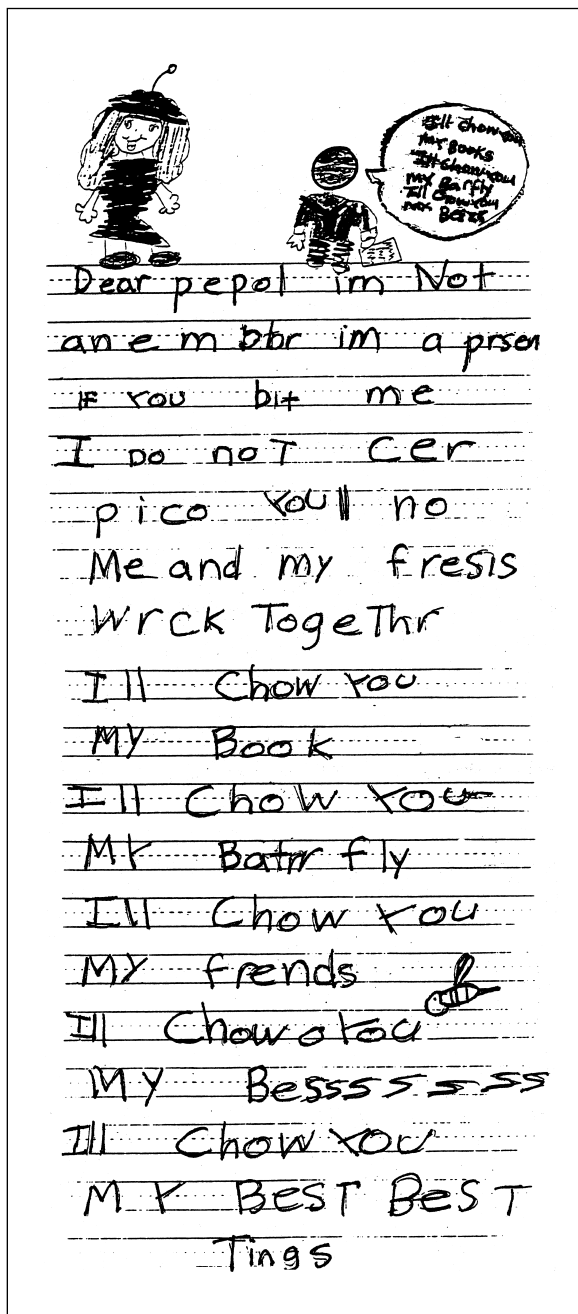 I'll Chow you
my Books
I'll Chow you
my Barfly
I'll Chow you
my Bess
Dear pepol im Not
an e m bbr im a prson
IF YOU bit me
I DO noT cer
pico YOU'll no
Me and my fresis
Wrck TogeThr
I'll Chow You
My Book
I'll Chow You
MY Batrr fly
I'll Chow You
MY frends
I'll Chow o You
My Besssssss
I'll Chow You
MY BesT BesT
Tings